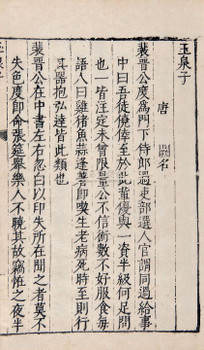 玉泉子
唐　闕名
裴晉公度爲門下侍郎過吏部選人官謂同過給事
中曰吾徒僥倖至於此輩優與一資半級何足問
也一皆注定未曾限量公不信術數不好服食每
語人曰雞猪魚蒜逢著即喫生老病死時至則行
其器抱弘達皆此類也
裴晉公在中書左右忽白以印失所在聞之者莫不
失色度即命張筵舉樂人不曉其故竊怪之夜半